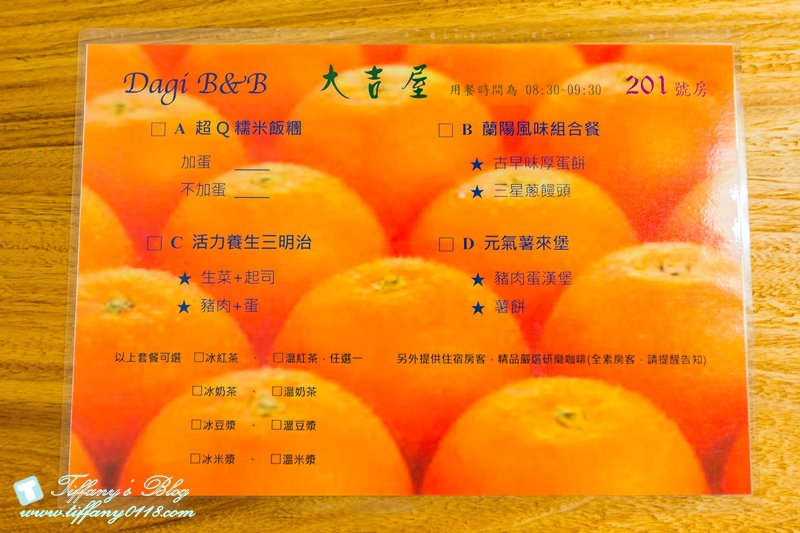 Dagi B&B 大吉屋 用餐時間為 08:30~09:30 201 號房
□ A 超Q糯米飯糰
加蛋 ____
不加蛋 ____
□ B 蘭陽風味組合餐
★ 古早味厚蛋餅
★ 三星蔥饅頭
□ C 活力養生三明治
★ 生菜+起司
★ 豬肉+蛋
□ D 元氣薯來堡
★ 豬肉蛋漢堡
★ 薯餅
以上套餐可選 □冰紅茶 、 □溫紅茶,任選一
□冰奶茶 、 □溫奶茶
□冰豆漿 、 □溫豆漿
□冰米漿 、 □溫米漿
另外提供住宿房客,精品嚴選研磨咖啡(全素房客,請提醒告知)
Tiffany's Blog
www.tiffany0118.com